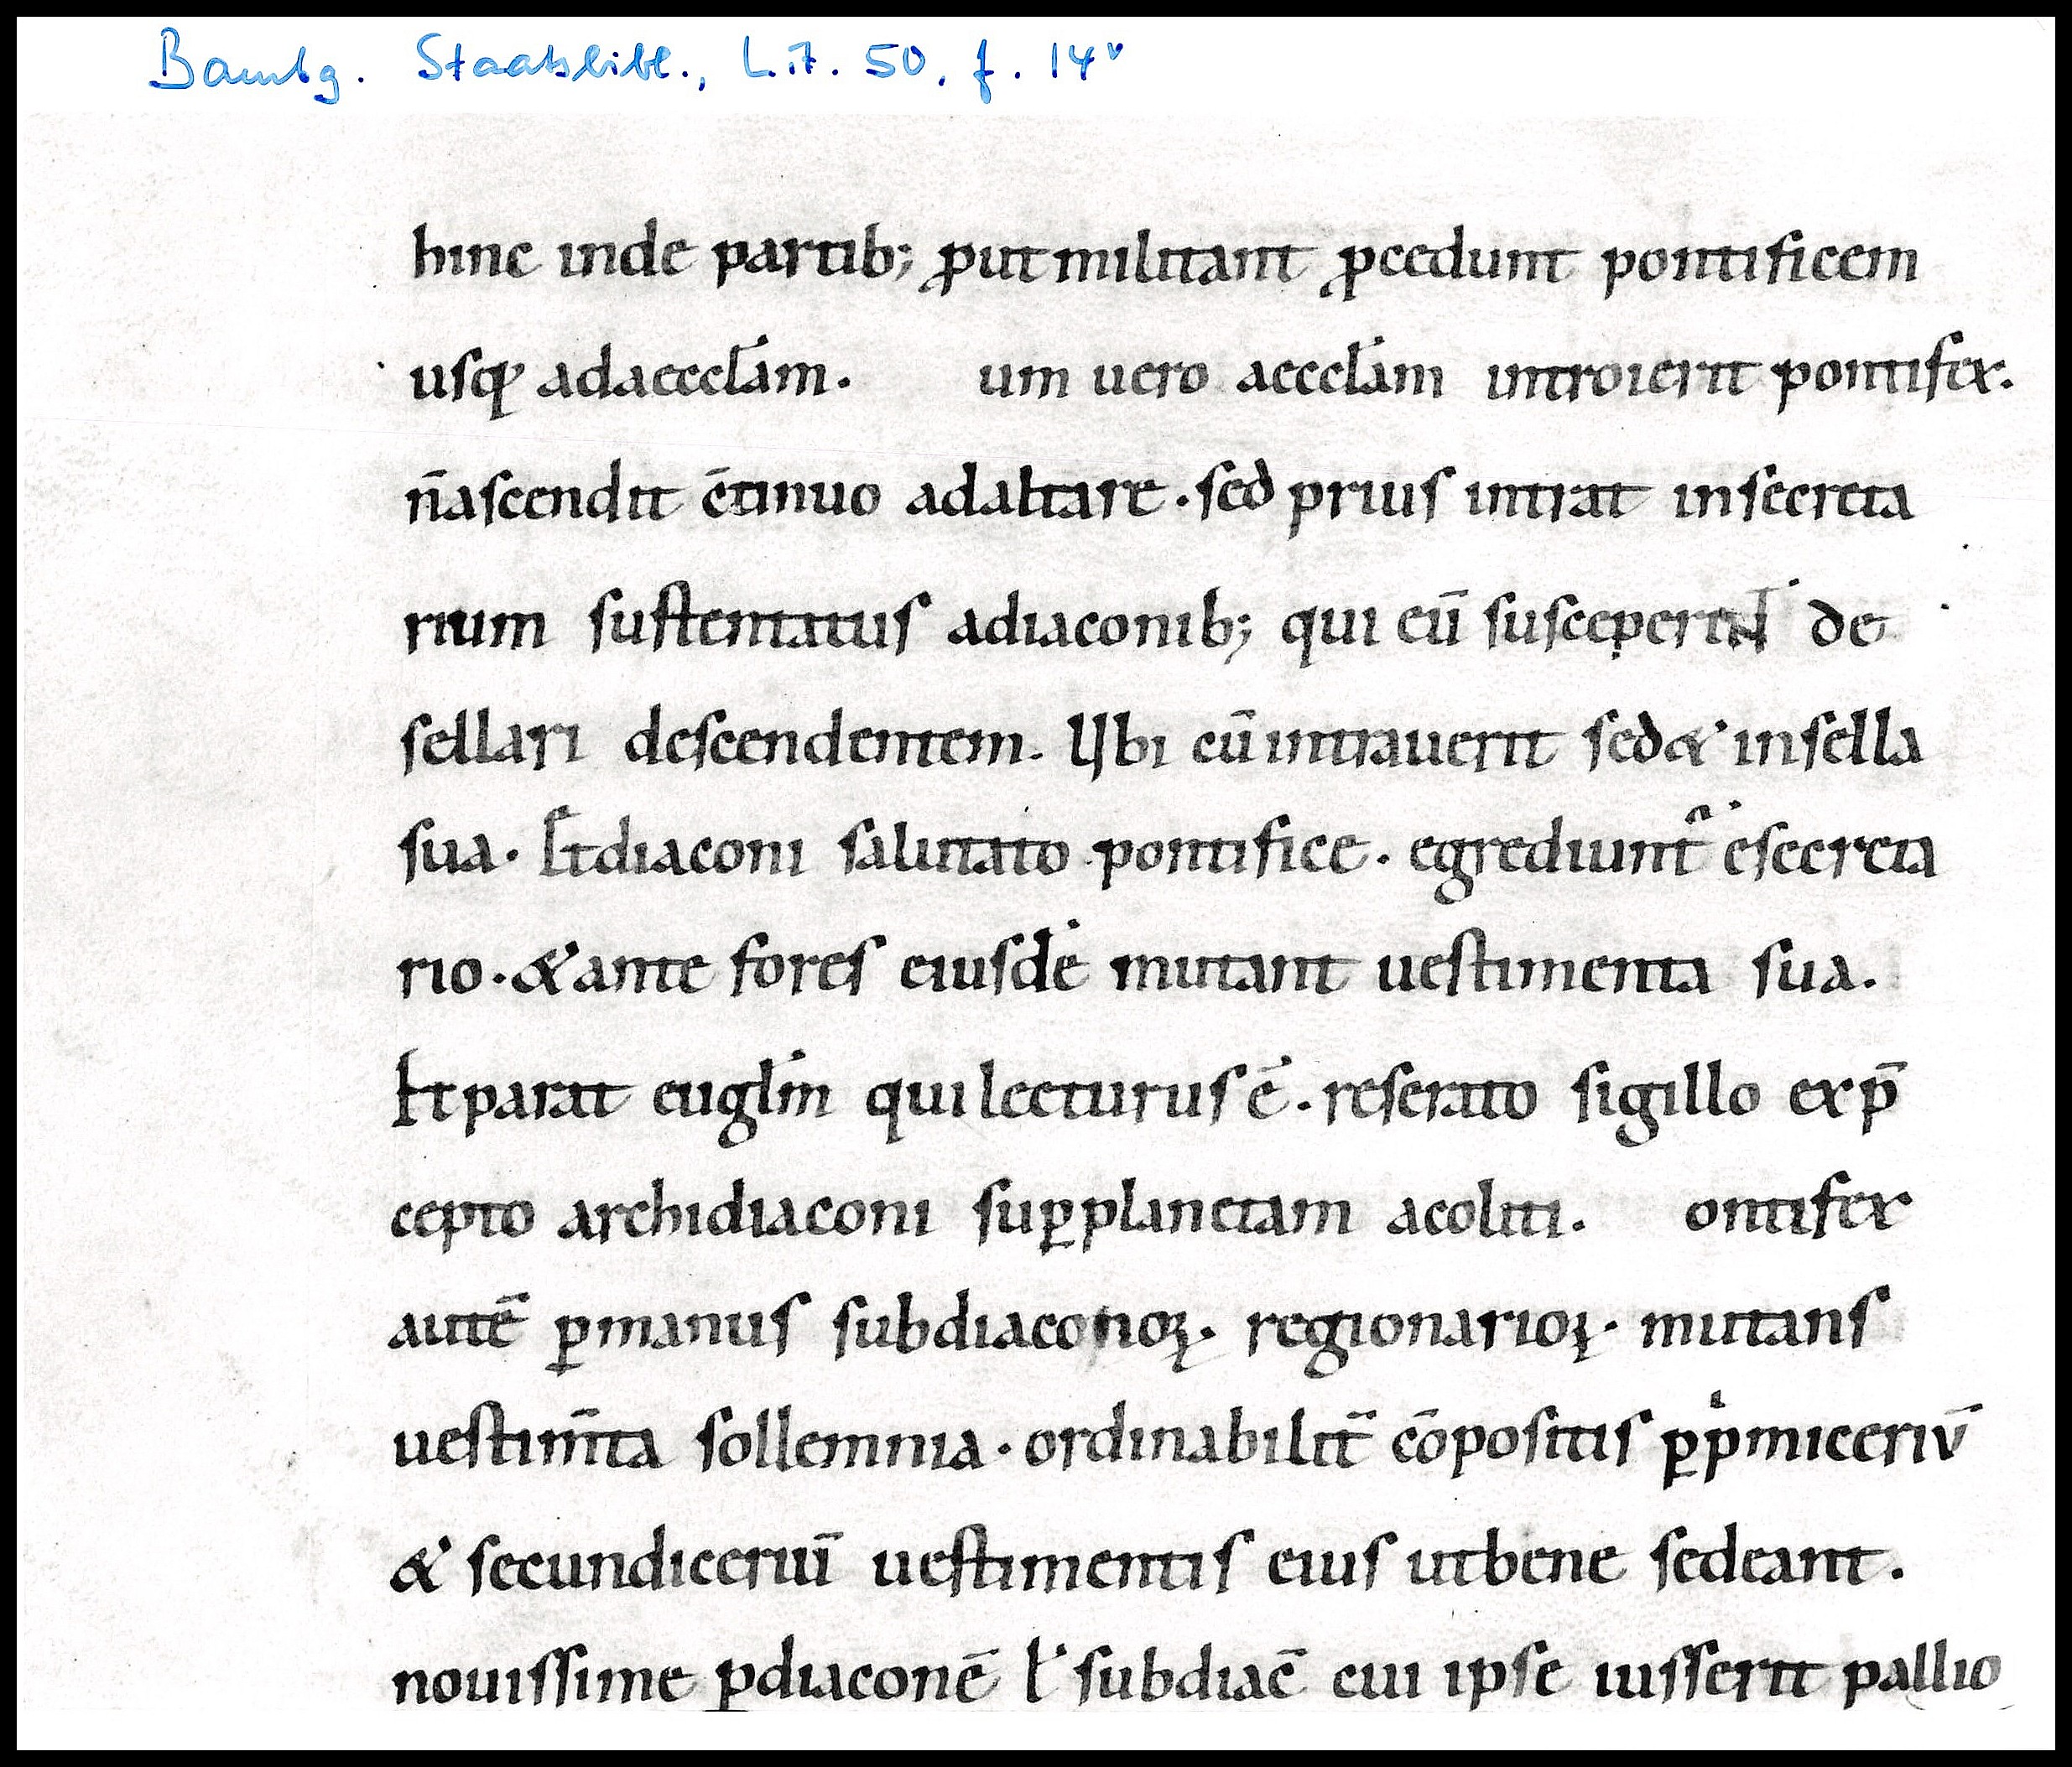 Bambg. Staatsbibl., Lit. 50, f. 14v
hinc inde partib; ꝓut militant ꝓcedunt pontificem
usq; adaeccl̄am. um uero aeccl̄am introierit pontifex.
n̄ascendit c̄tinuo adaltare. sed prius intrat insecreta
rium sustentatus adiaconib; qui eū susceperint de
sellari descendentem. Ubi cū intrauerit sed& insella
sua. Et diaconi salutato pontifice. egrediunt᷑ esecreta
rio. & ante fores eiusdē mutant uestimenta sua.
Et parat eugl̄m qui lecturus ē. reserato sigillo exp̄
cepto archidiaconi suꝑplanetam acoliti. ontifex
autē ꝑmanus subdiaconoꝝ. regionarioꝝ. mutans
uestim̄ta sollemnia. ordinabilit̄ cōpositis ꝑpͥmiceriū
& secundiceriū uestimentis eius utbene sedeant.
nouissime ꝑdiaconē ł subdiac̄ cui ipse iusserit pallio